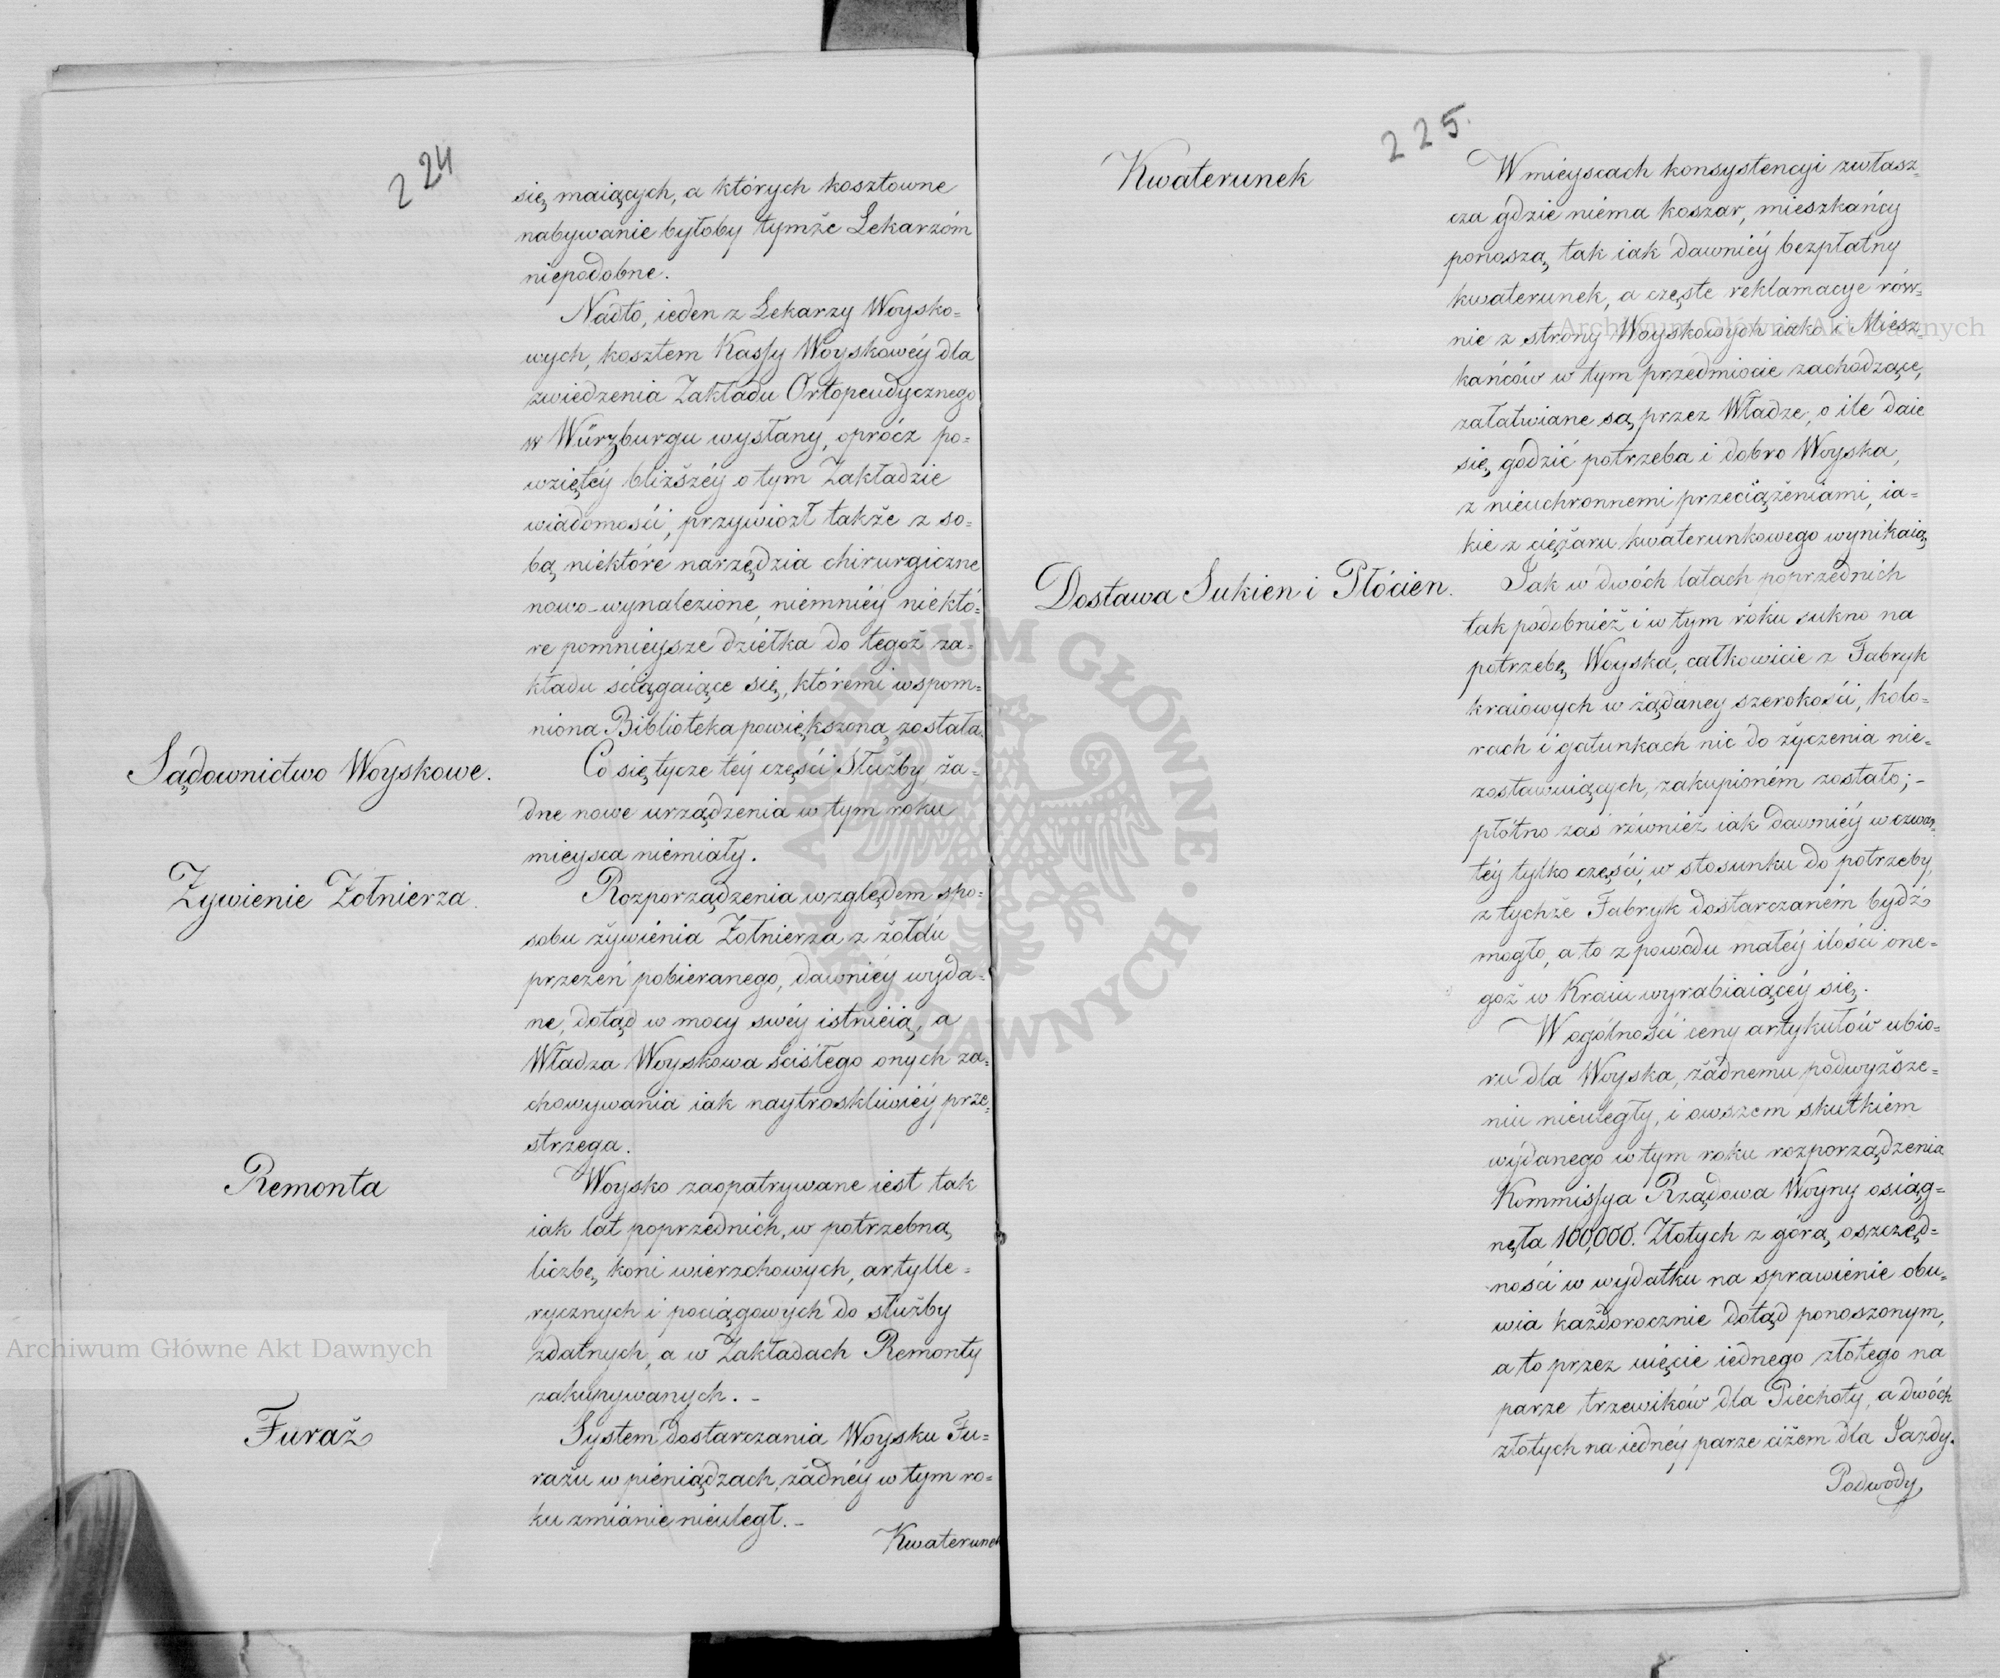 224
się maiących, a których kosztowne
nabywanie byłoby tymże Lekarzóm
niepodobne.
Nadto, ieden z Lekarzy Woysko=
wych, kosztem Kassy Woyskowéy dla
zwiedzenia Zakładu Ortopeudycznego
w Würzburgu wysłany, oprócz po=
wziętéy bliższéy o tym Zakładzie
wiadomości, przywiozł także z so=
bą niektóre narzędzia chirurgiczne
nowo-wynalezione, niemniéy niektó=
re pomnieysze dziełka do tegoż za=
kładu ściągaiące się, któremi wspom=
niona Biblioteka powiększoną została.
Sądownictwo Woyskowe.
Co się tycze téy części Służby ża=
dne nowe urządzenia w tym roku
mieysca niemiały.
Żywienie Żołnierza.
Rozporządzenia względem spo=
sobu żywienia Żołnierza z żołdu
przezeń pobieranego, dawniéy wyda=
ne, dotąd w mocy swéy istnieią, a
Władza Woyskowa ścisłego onych za=
chowywania iak naytroskliwiéy prze=
strzega.
Remonta
Woysko zaopatrywane iest tak
iak lat poprzednich, w potrzebną
liczbę koni wierzchowych, artylle=
rycznych i pociągowych do służby
zdatnych, a w Zakładach Remonty
zakupywanych. -
Furaż
System dostarczania Woysku Fu=
rażu w pieniądzach, żadnéy w tym ro=
ku zmianie nieuległ. -
Kwaterunek
225.
Kwaterunek
W mieyscach konsystencyi zwłasz=
cza gdzie niéma koszar, mieszkańcy
ponoszą tak iak dawniéy bezpłatny
kwaterunek, a częste reklamacye rów=
nie z strony Woyskowych iako i Miesz=
kańców w tym przedmiocie zachodzące,
załatwiane są przez Władze, o ile daie
się godzić potrzeba i dobro Woyska,
z nieuchronnemi przeciążeniami, ia=
kie z ciężaru kwaterunkowego wynikaią
Dostawa Sukien i Płócien.
Jak w dwóch latach poprzednich
tak podobnież i w tym roku sukno na
potrzebę Woyska, całkowicie z Fabryk
kraiowych w żądaney szerokości, kolo=
rach i gatunkach nic do życzenia nie=
zostawuiących, zakupioném zostało; -
płótno zaś również iak dawniéy w czwar=
téy tylko części, w stosunku do potrzeby,
z tychże Fabryk dostarczaném bydź
mogło, a to z powodu małéy ilości one=
goż w Kraiu wyrabiaiącéy się.
W ogólności ceny artykułów ubio=
ru dla Woyska, żadnemu podwyższe=
niu nieuległy, i owszem skutkiem
wydanego w tym roku rozporządzenia
Kommissya Rządowa Woyny osiąg=
nęła 100,000. Złotych z górą oszczęd=
ności w wydatku na sprawienie obu=
wia każdorocznie dotąd ponoszonym,
a to przez uięcie iednego złotego na
parze trzewików dla Piéchoty, a dwóch
złotych na iednéy parze ciżem dla Jazdy.
Podwody
Archiwum Główne Akt Dawnych
Archiwum Główne Akt Dawnych
ARCHIWUM GŁÓWNE AKT DAWNYCH